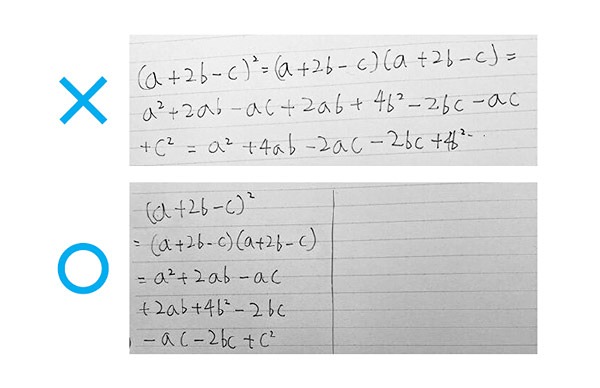 (a+2b-c)²=(a+2b-c)(a+2b-c)=
a²+2ab-ac+2ab+4b²-2bc-ac
+c²=a²+4ab-2ac-2bc+4b²-‥
(a+2b-c)²
=(a+2b-c)(a+2b-c)
=a²+2ab-ac
+2ab+4b²-2bc
-ac-2bc+c²